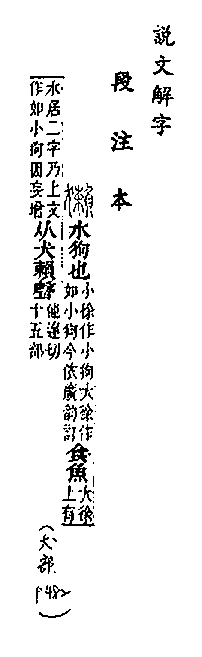 說文解字
段注本
獺水狗也小徐作小狗大徐作如小狗今依廣韵訂食魚大徐上有
水居二字乃上文作如小狗因妄增从犬賴聲他達切十五部
(犬部 P482)